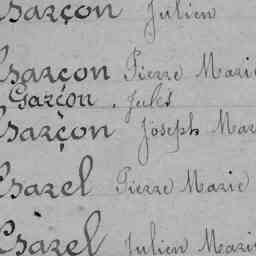 Garçon Julien
Garçon Pierre Marie
Garçon Jules
Garçon Joseph Mar
Garel Pierre Marie
Garel Julien Marie